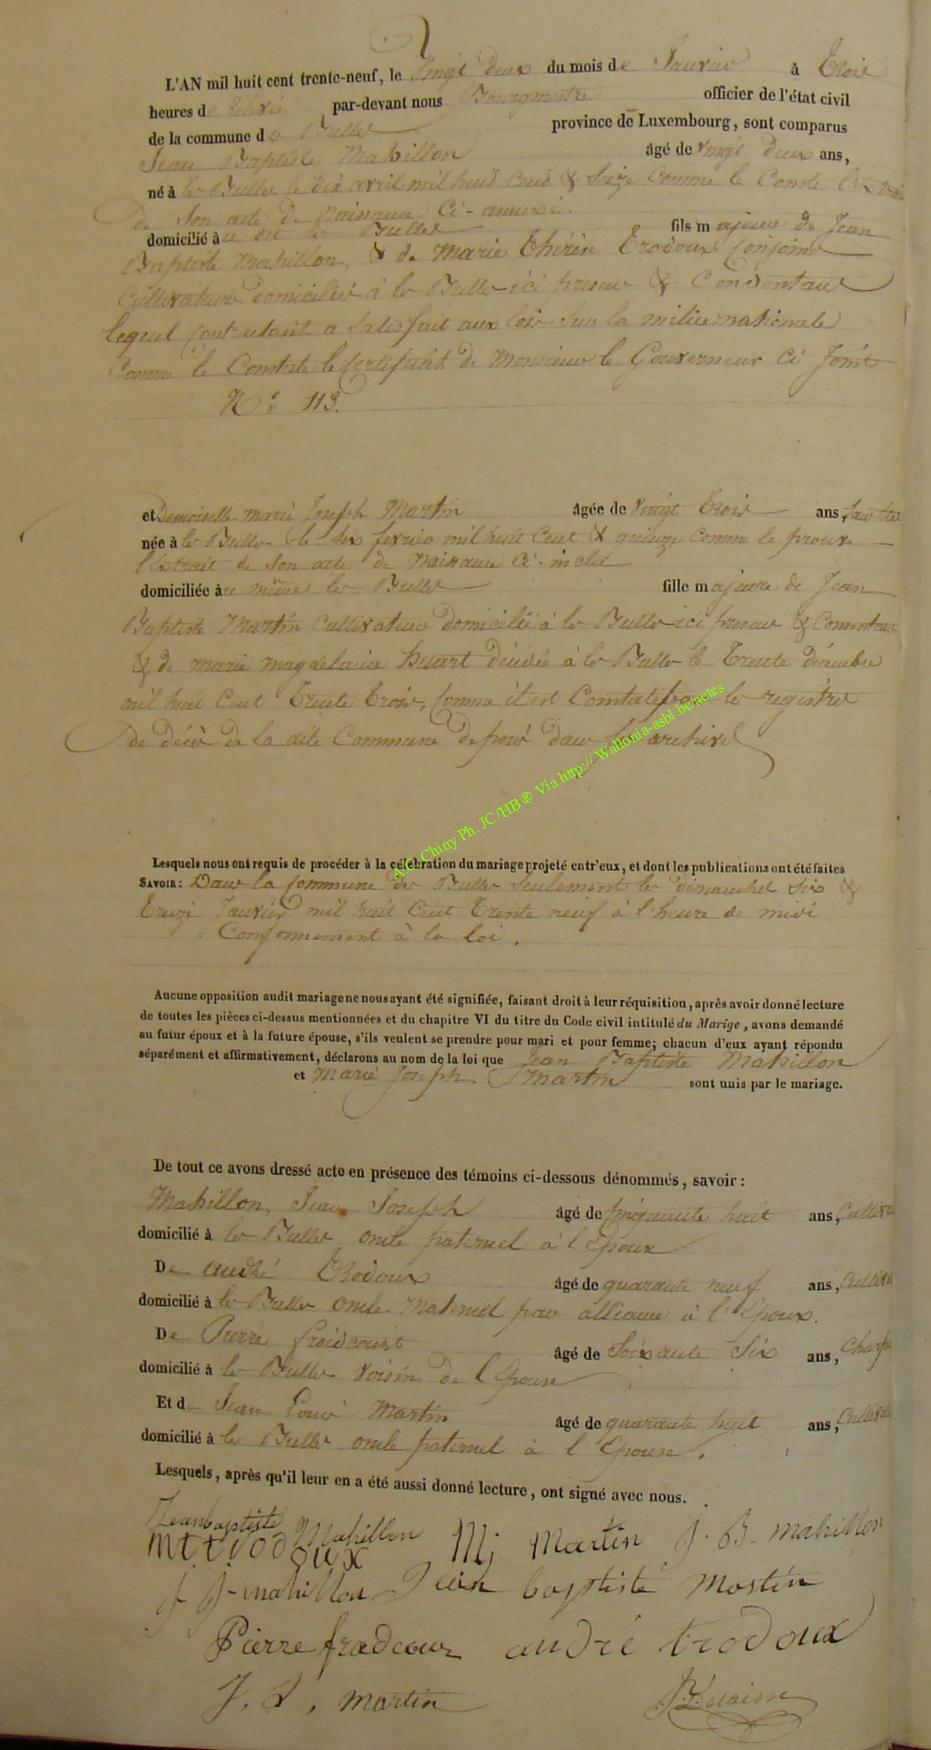 L'AN mil huit cent trente-neuf, le Vingt deux du mois de Janvier à Trois
heures de relevé par-devant nous Bourgmestre officier de l'état civil
de la commune de Bulles province de Luxembourg, sont comparus
Jean Baptiste Mahillon âgé de vingt deux ans,
né à les Bulles le dix avril mil huit cent & seize comme le Conste
de son acte de Naissance ci-annexé.
domicilié au dit les Bulles fils majeur de Jean
Baptiste Mahillon, & de Marie Thérèse Trodoux Conjoins
Cultivateurs domiciliés à les Bulles ici présens & Consentans
lequel Contractant a satisfait aux lois sur la milice nationale
Comme le Constate le Certificat de Monsieur le Gouverneur ci Joint
No: 113.
et Demoiselle marie Joseph Martin âgée de vingt trois ans, sans état
née à les Bulles le six fevrier mil huit Cent & quinze comme le prouve
l'extrait de son acte de Naissance ci-inclu
domiciliée au même les Bulles fille majeure de Jean
Baptiste Martin Cultivateur domicilié à les Bulles ici présent & Consentant
& de marie magdelaine huart décédée à les Bulles le trente décembre
mil huit Cent trente trois, Comme il est Constaté par les registres
de décès de la dite Commune déposé dans les archives
A.G. Chiny Ph. JC/HB® Via http://Wallonia-asbl be/actes
Lesquels nous ont requis de procéder à la célébration du mariage projeté entr'eux, et dont les publications ont été faites
SAVOIR: Dans la Commune des Bulles seulement les dimanches six &
treize Janvier mil huit Cent Trente neuf à l'heure de midi
Conformement à la loi.
Aucune opposition audit mariage ne nous ayant été signifiée, faisant droit à leur réquisition, après avoir donné lecture
de toutes les pièces ci-dessus mentionnées et du chapitre VI du titre du Code civil intitulé du Marige, avons demandé
au futur époux et à la future épouse, s'ils veulent se prendre pour mari et pour femme; chacun d'eux ayant répondu
séparément et affirmativement, déclarons au nom de la loi que Jean Baptiste Mahillon
et Marie Joseph Martin sont unis par le mariage.
De tout ce avons dressé acte en présence des témoins ci-dessous dénommés, savoir:
Mahillon Jean Joseph âgé de cinquante huit ans,
domicilié à les Bulles oncle paternel à l'Epoux
De André Trodoux âgé de quarante neuf ans,
domicilié à les Bulles oncle Maternel par alliance à l'Epoux.
De Pierre froidcourt âgé de Soixante Six ans,
domicilié à les Bulles voisin de l'Epouse
Et de Jean Louis Martin âgé de quarante huit ans,
domicilié à les Bulles oncle paternel à l'Epouse.
Lesquels, après qu'il leur en a été aussi donné lecture, ont signé avec nous.
Jean baptiste Mahillon Mj Martin J. B. mahillon
m t trodoux
J J-mahillon Jean baptiste Mostin
Pierre fradcour andré trodoux
J. L. martin